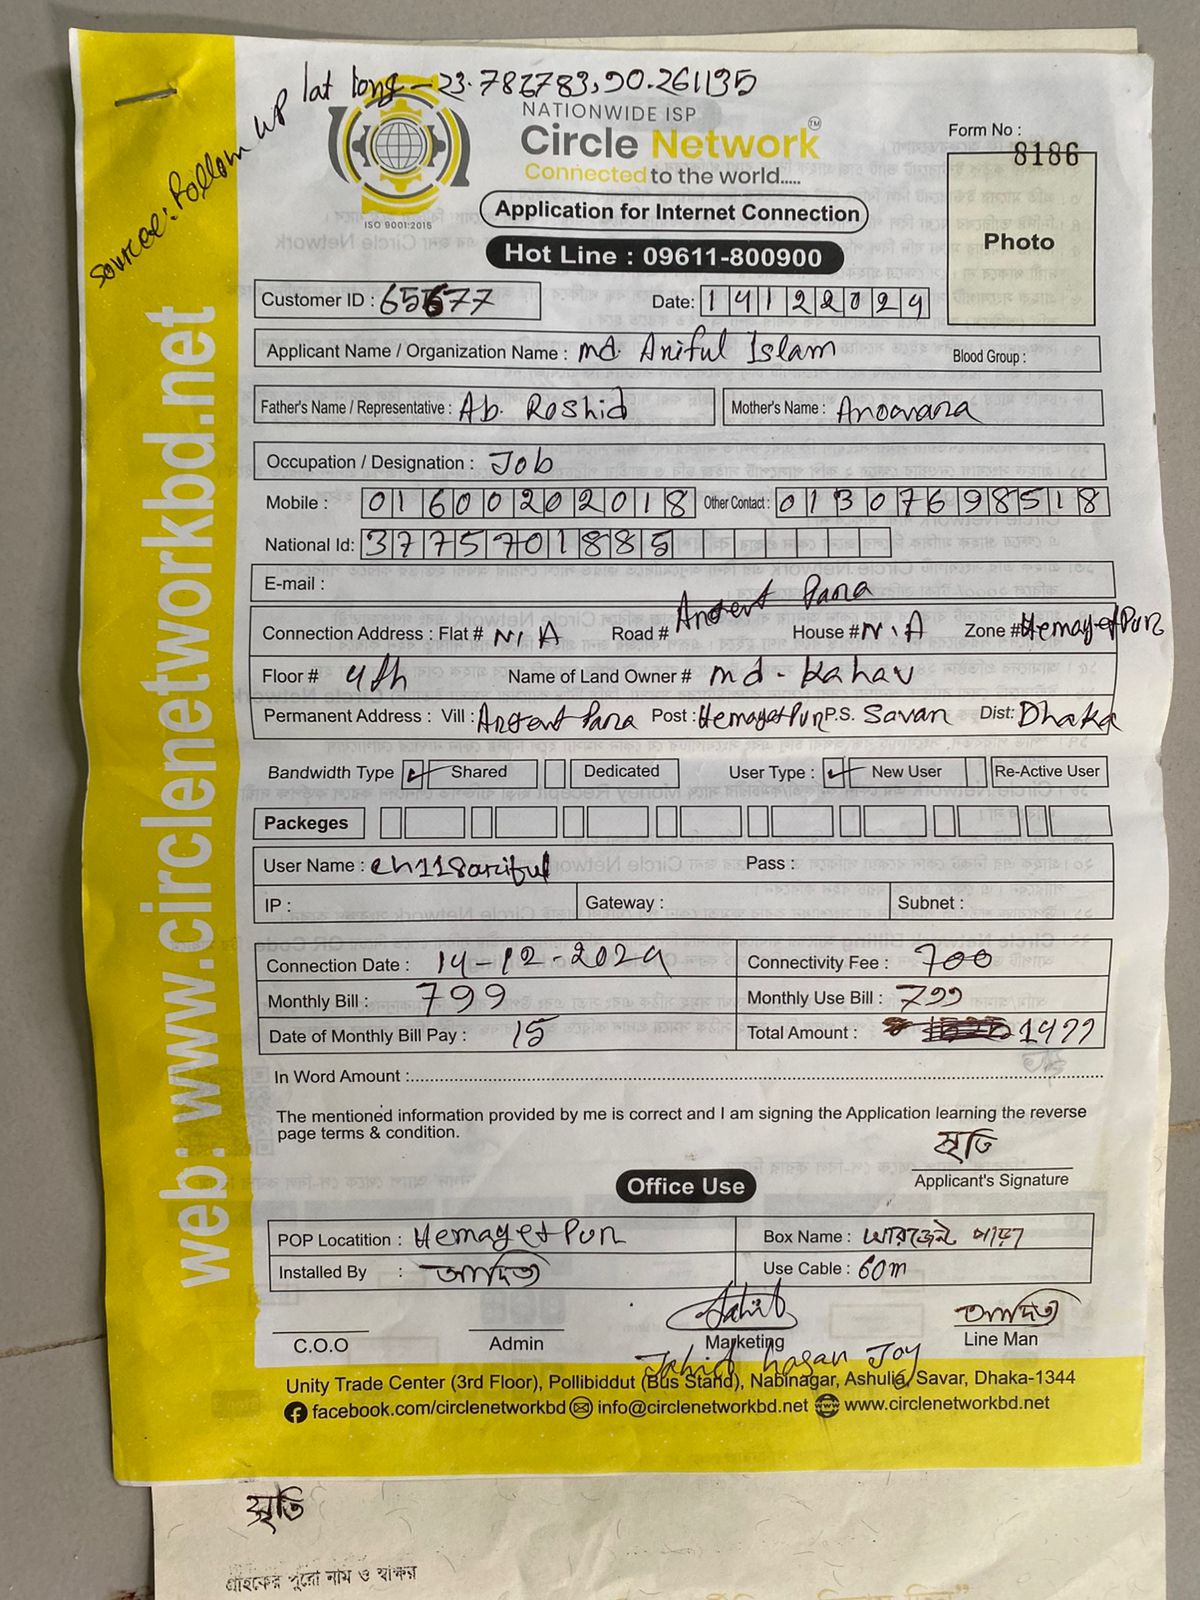 lat long - 23.786783,90.261135
Source: Follow up
NATIONWIDE ISP
Circle Network TM
Connected to the world.....
ISO 9001:2015
Form No :
8186
Application for Internet Connection
Photo
Hot Line : 09611-800900
Customer ID : 65677 Date: 14122024
Applicant Name / Organization Name : md. Ariful Islam Blood Group :
Father's Name / Representative : Ab. Roshid Mother's Name : Anowara
Occupation / Designation : Job
Mobile : 01600202018 Other Contact : 01307698518
National Id: 3775701885
E-mail :
Connection Address : Flat # N.A Road # Para House # N.A Zone # HemayetPur
Floor # 4th Name of Land Owner # md.
Permanent Address : Vill : Para Post : HemayetPur P.S. Savar Dist: Dhaka
Bandwidth Type ✓ Shared Dedicated User Type : ✓ New User Re-Active User
Packeges
User Name : ch118ariful Pass :
IP : Gateway : Subnet :
Connection Date : 14-12-2024 Connectivity Fee : 700
Monthly Bill : 799 Monthly Use Bill : 799
Date of Monthly Bill Pay : 15 Total Amount : 1499
In Word Amount :
The mentioned information provided by me is correct and I am signing the Application learning the reverse
page terms & condition.
স্মৃতি
Applicant's Signature
Office Use
POP Locatition : HemayetPur Box Name : আরজেন্ট পাড়া
Installed By : আদিত্য Use Cable : 60m
C.O.O Admin Jahid Marketing আদিত্য Line Man
Jahid hasan Joy
Unity Trade Center (3rd Floor), Pollibiddut (Bus Stand), Nabinagar, Ashulia, Savar, Dhaka-1344
facebook.com/circlenetworkbd info@circlenetworkbd.net www.circlenetworkbd.net
web: www.circlenetworkbd.net
স্মৃতি
গ্রাহকের পুরো নাম ও স্বাক্ষর